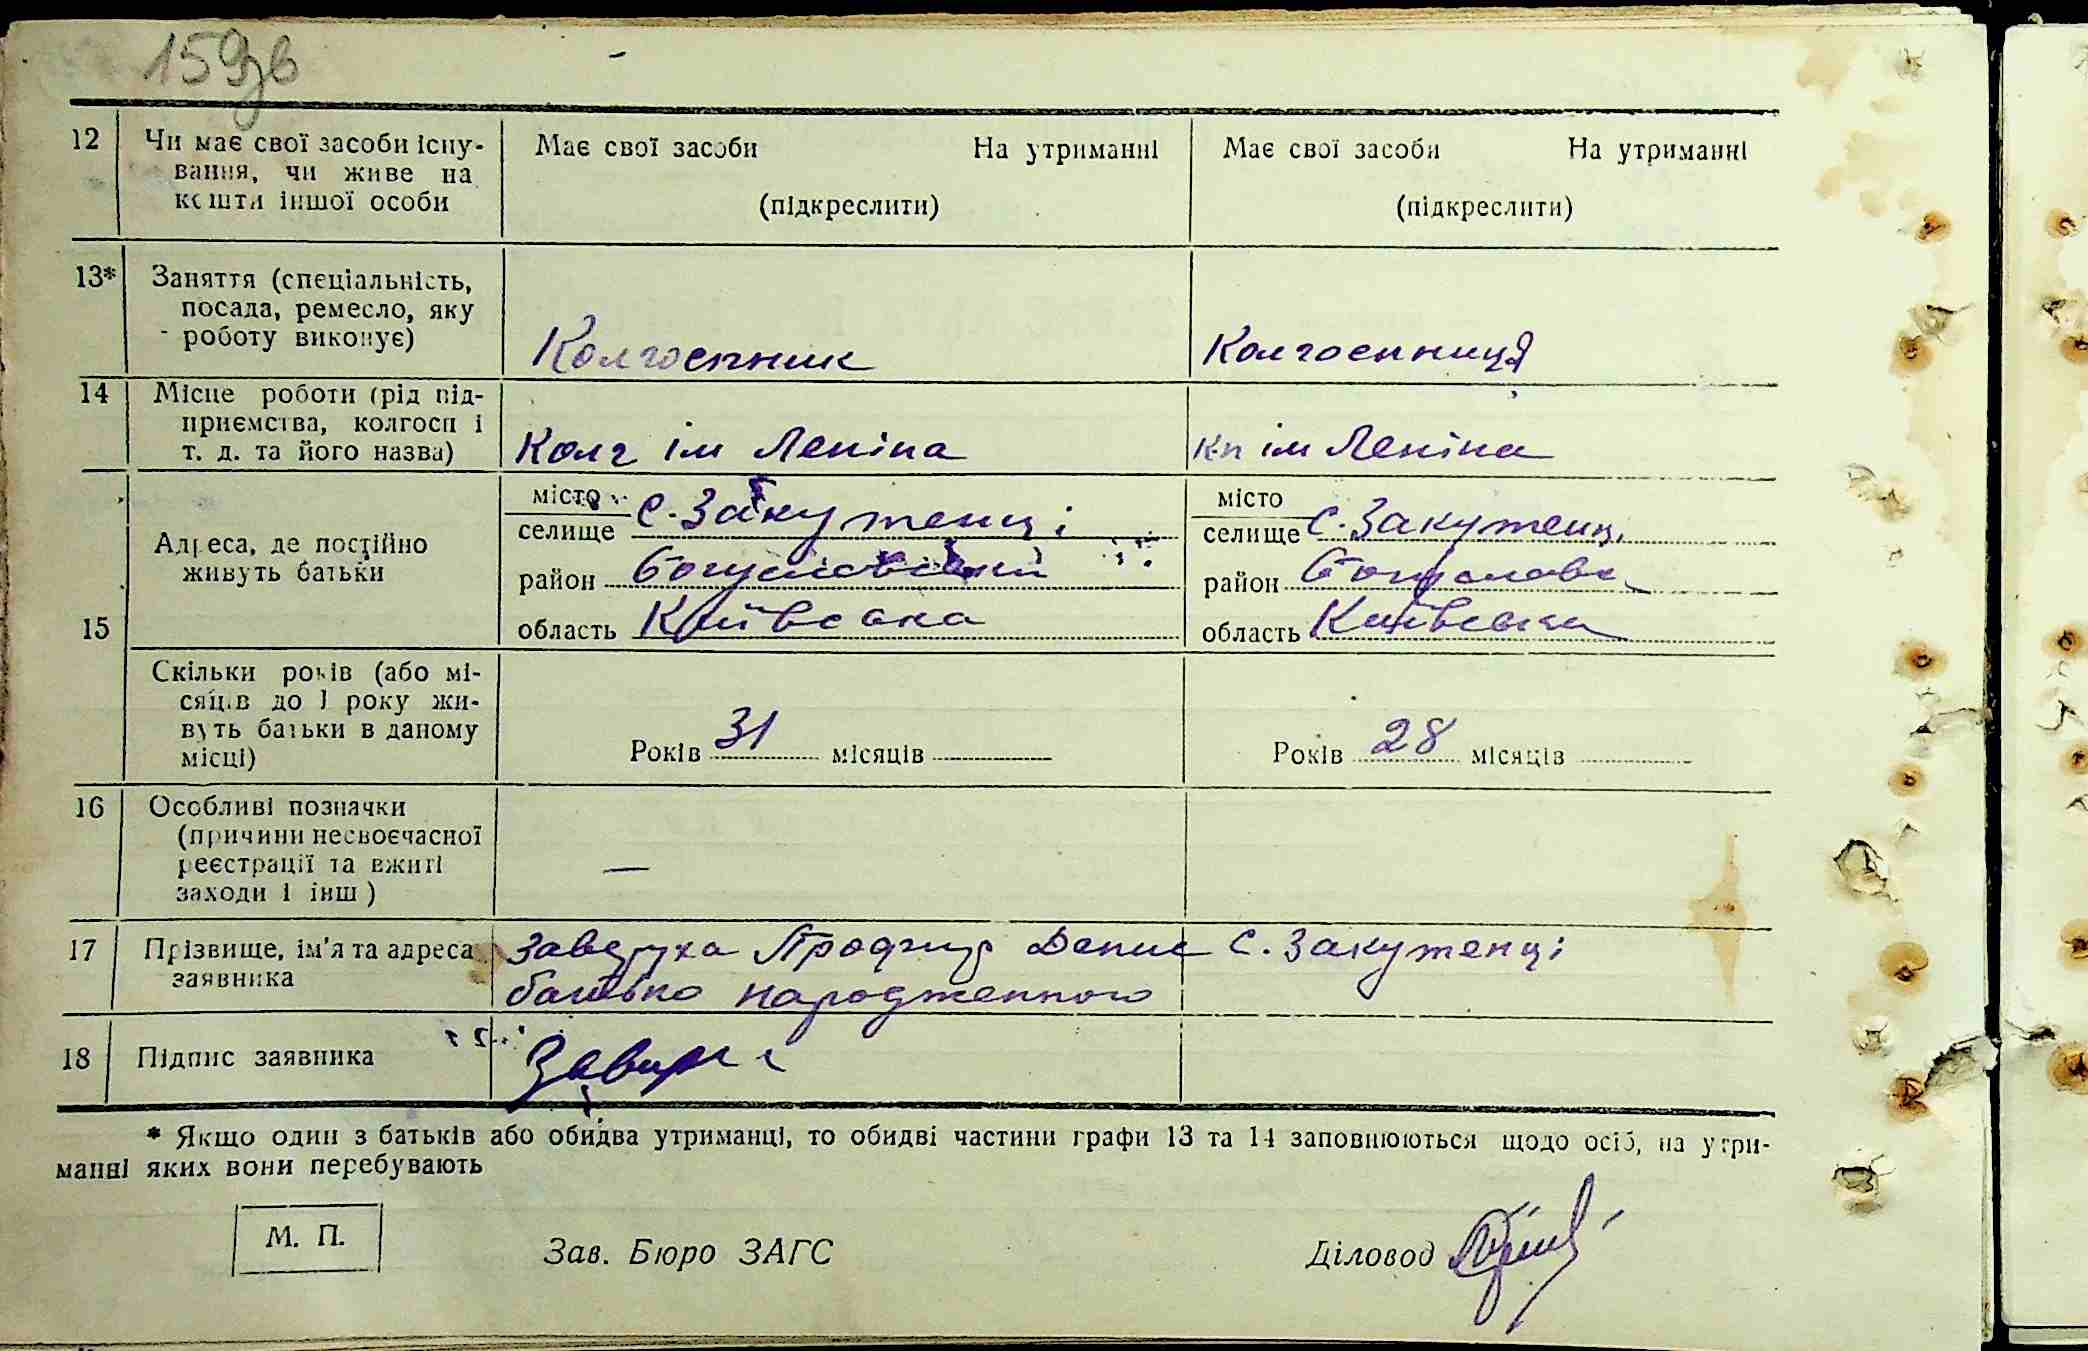 159зв
12 Чи має свої засоби існу- Має свої засоби На утриманні Має свої засоби На утриманні
вання, чи живе на
кошти іншої особи (підкреслити) (підкреслити)
13* Заняття (спеціальність,
посада, ремесло, яку
роботу виконує) Колгоспник Колгоспниця
14 Місце роботи (рід під-
приємства, колгосп і
т. д. та його назва) Колг ім Леніна К-п ім Леніна
місто місто
селище с. Закутенці селище с. Закутенці
Адреса, де постійно
живуть батьки
район Богуславський район Богуславс
15 область Київська область Київська
Скільки років (або мі-
сяців до 1 року жи-
вуть батьки в даному
місці) Років 31 місяців Років 28 місяців
16 Особливі позначки
(причини несвоєчасної
реєстрації та вжиті
заходи і інш) —
17 Прізвище, ім'я та адреса Заверуха Денис с. Закутенці
заявника батько народженного
18 Підпис заявника
* Якщо один з батьків або обидва утриманці, то обидві частини графи 13 та 14 заповнюються щодо осіб, на утри-
манні яких вони перебувають
М. П. Зав. Бюро ЗАГС Діловод